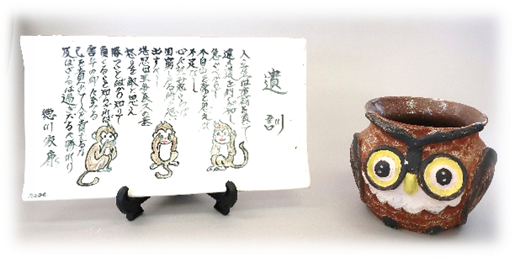 遺訓
人の一生は重荷を負て
遠き道を行くが如し
急ぐべからず
不自由を常と思へば
不足なし
心に望おこらば
困窮したる時を思ひ
出すべし
堪忍は無事長久の基
怒りを敵と思え
勝つことばかり知って
負くることを知らざれば
害その身に至る
己を責めて人を責めるな
及ばざるは過ぎたるより勝れり
徳川家康